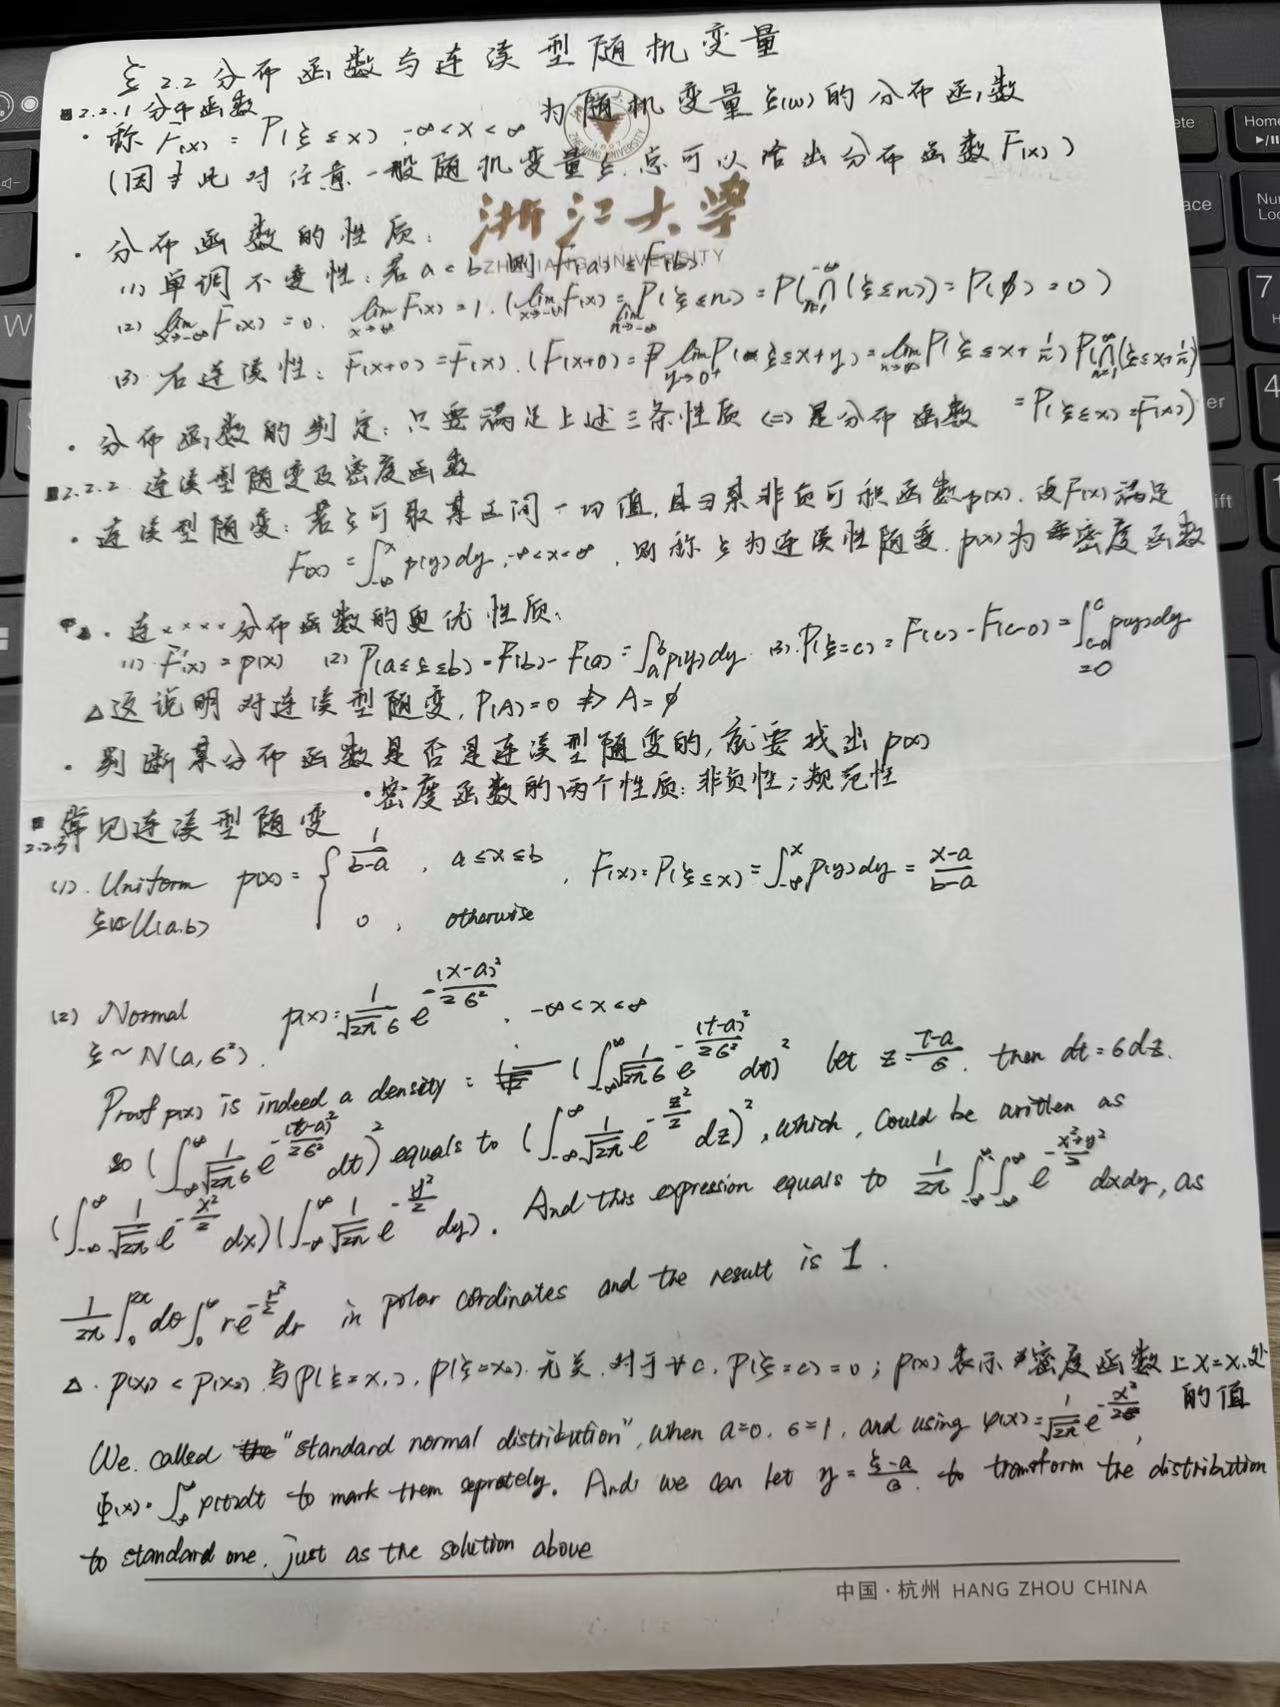 § 2.2 分布函数与连续型随机变量
2.2.1 分布函数
· 称 F(x) = P(ξ≤x) -∞<x<∞ 为随机变量ξ(ω)的分布函数
(因此对任意一般随机变量ξ.总可以给出分布函数F(x))
浙江大学
ZHEJIANG UNIVERSITY
· 分布函数的性质:
(1) 单调不变性: 若 a<b 则 F(a)≤F(b)
(2) lim_{x→-∞} F(x) = 0. lim_{x→∞} F(x) = 1. (lim_{x→-∞} F(x) = lim_{n→-∞} P(ξ≤n) = P(∩_{n=1}^{-∞}(ξ≤n)) = P(∅) = 0)
(3) 右连续性: F(x+0) = F(x). (F(x+0) = lim_{y→0+} P(ξ≤x+y) = lim_{n→∞} P(ξ≤x+1/n) P(∩_{n=1}^{∞}(ξ≤x+1/n)
= P(ξ≤x) = F(x))
· 分布函数的判定: 只要满足上述三条性质 ⟺ 是分布函数
2.2.2. 连续型随变及密度函数
· 连续型随变: 若ξ可取某区间一切值, 且∃某非负可积函数p(x). 设F(x)满足
F(x) = ∫_{-∞}^{x} p(y)dy, -∞<x<∞, 则称ξ为连续性随变. p(x)为密度函数
· 连××××分布函数的更优性质:
(1) F'(x) = p(x) (2) P(a≤ξ≤b) = F(b) - F(a) = ∫_a^b p(y)dy. (3). P(ξ=c) = F(c) - F(c-0) = ∫_{c-0}^{c} p(y)dy
=0
△ 这说明对连续型随变, P(A)=0 ⇏ A=∅
· 判断某分布函数是否是连续型随变的, 就要找出 p(x)
· 密度函数的两个性质: 非负性; 规范性
2.2.3 常见连续型随变
(1). Uniform p(x) = { 1/(b-a), a≤x≤b , F(x) = P(ξ≤x) = ∫_{-∞}^{x} p(y)dy = (x-a)/(b-a)
ξ~U(a.b) 0, otherwise
(2) Normal p(x) = 1/(√2π σ) e^{-(x-a)²/2σ²}, -∞<x<∞
ξ~N(a, σ²).
Proof p(x) is indeed a density: (∫_{-∞}^{∞} 1/(√2π σ) e^{-(t-a)²/2σ²} dt)² let z = (t-a)/σ. then dt = σdz.
so (∫_{-∞}^{∞} 1/(√2π σ) e^{-(t-a)²/2σ²} dt)² equals to (∫_{-∞}^{∞} 1/√2π e^{-z²/2} dz)², which, could be written as
(∫_{-∞}^{∞} 1/√2π e^{-x²/2} dx)(∫_{-∞}^{∞} 1/√2π e^{-y²/2} dy). And this expression equals to 1/2π ∫_{-∞}^{∞}∫_{-∞}^{∞} e^{-(x²+y²)/2} dxdy, as
1/2π ∫_0^{2π} dθ ∫_0^{∞} re^{-r²/2} dr in polar cordinates and the result is 1.
△. p(x₁) < p(x₂) 与 P(ξ=x₁), P(ξ=x₂) 无关. 对于∀c, P(ξ=c)=0; p(x₁) 表示密度函数上 x=x₁处
的值
We. called "standard normal distribution", when a=0. σ=1, and using φ(x) = 1/√2π e^{-x²/2},
Φ(x) = ∫_{-∞}^{x} p(t)dt to mark them seprately. And we can let y = (ξ-a)/σ. to transform the distribution
to standard one, just as the solution above
中国·杭州 HANG ZHOU CHINA